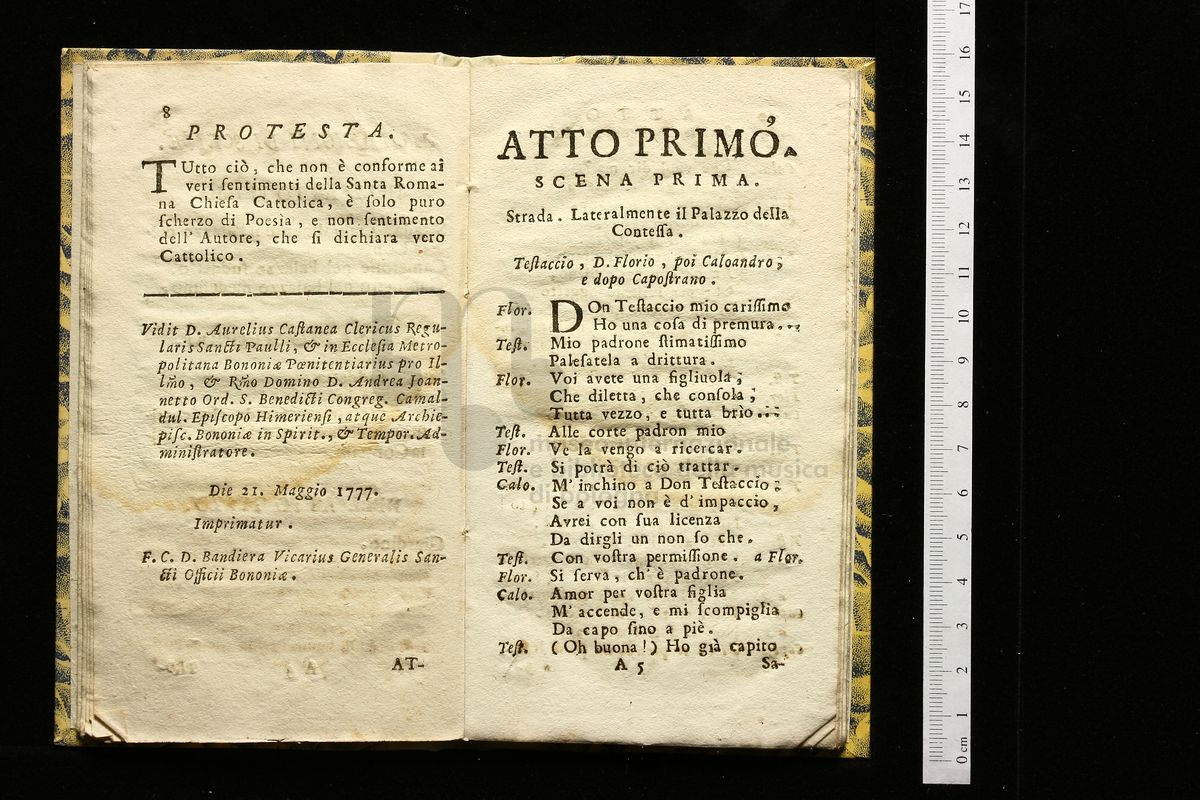 8
PROTESTA.
TUtto ciò, che non è conforme ai
veri ſentimenti della Santa Roma-
na Chieſa Cattolica, è ſolo puro
ſcherzo di Poesia, e non ſentimento
dell' Autore, che ſi dichiara vero
Cattolico.
Vidit D. Aurelius Caſtanea Clericus Regu-
laris Sancti Paulli, & in Eccleſia Metro-
politana Bononiæ Pœnitentiarius pro Il-
lm̃o, & Rm̃o Domino D. Andrea Joan-
netto Ord. S. Benedicti Congreg. Camal-
dul. Epiſcopo Himerienſi, atque Archie-
piſc. Bononiæ in Spirit., & Tempor. Ad-
miniſtratore.
Die 21. Maggio 1777.
Imprimatur.
F. C. D. Bandiera Vicarius Generalis San-
cti Officii Bononiæ.
AT-
9
ATTO PRIMO.
SCENA PRIMA.
Strada. Lateralmente il Palazzo della
Conteſſa.
Teſtaccio, D. Florio, poi Caloandro;
e dopo Capoſtrano.
Flor. DOn Teſtaccio mio cariſſimo
Ho una coſa di premura...
Teſt. Mio padrone ſtimatiſſimo
Paleſatela a drittura.
Flor. Voi avete una figliuola;
Che diletta, che conſola;
Tutta vezzo, e tutta brio...
Teſt. Alle corte padron mio
Flor. Ve la vengo a ricercar.
Teſt. Si potrà di ciò trattar.
Calo. M' inchino a Don Teſtaccio;
Se a voi non è d' impaccio,
Avrei con ſua licenza
Da dirgli un non ſo che.
Teſt. Con voſtra permiſſione. a Flor.
Flor. Si ſerva, ch' è padrone.
Calo. Amor per voſtra figlia
M' accende, e mi ſcompiglia
Da capo ſino a piè.
Teſt. (Oh buona!) Ho già capito
A 5 Sa-
museo internazionale
e biblioteca della musica
di bologna
0 cm 1 2 3 4 5 6 7 8 9 10 11 12 13 14 15 16 17